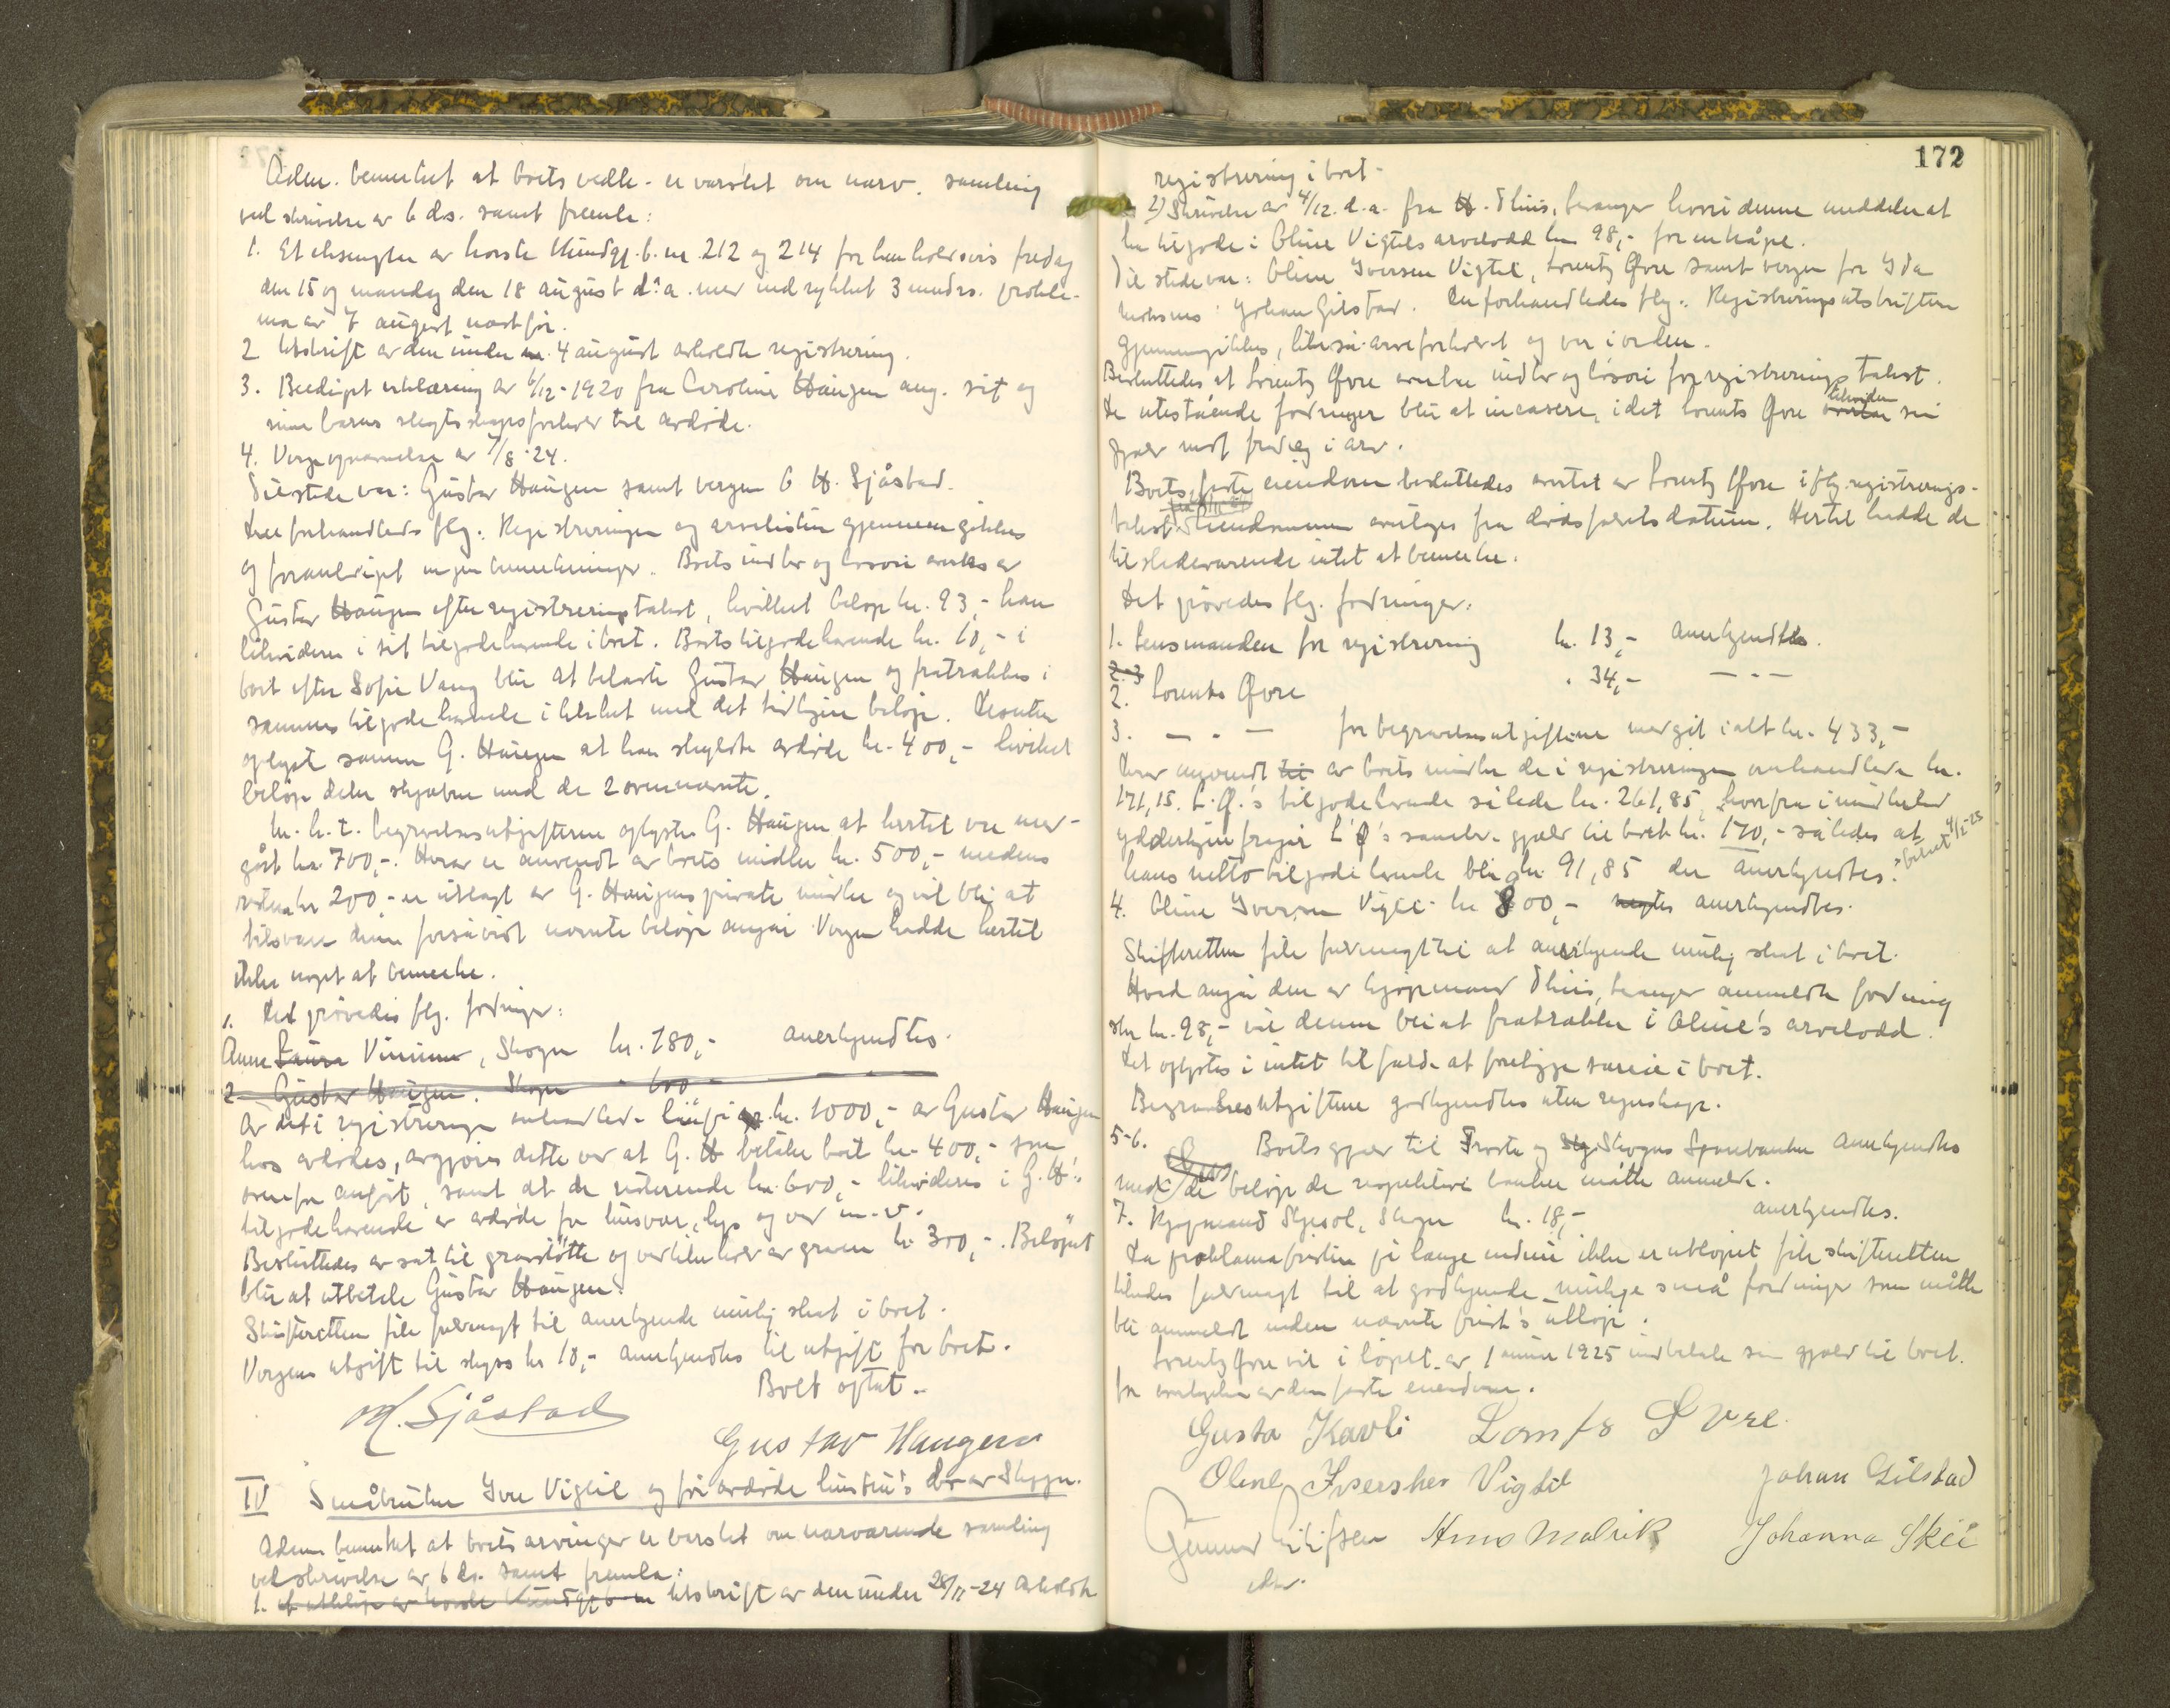 Adm. bemerket at boets vedk. er varslet om nærv. samling
ved skrivelse av 6 ds. samt fremla:
1. Et eksemplar av norske Kundgj. b. nr. 212 og 214 for henholdsvis fredag
den 15 og mandag den 18 august d.a. med indrykket 3 mndrs. prokla-
ma av 7 august næstfør.
2 Utskrift av den under 4 august avholdte registrering.
3. Beediget erklæring av 6/12-1920 fra Caroline Haugen ang. sit og
sine barns slegtskapsforhold til avdøde.
4. Vergeopnævnelse av 7/8-24.
Tilstede var: Gustav Haugen samt vergen O H. Sjåstad.
Der forhandledes flg.: Registreringen og arvelisten gjennemgikkes
og foranlediget ingen bemerkninger. Boets indbo og løsøre overtas av
Gustav Haugen efter registreringstakst, hvilket beløp kr. 93,- han
likviderer i sit tilgodehavende i boet. Boets tilgodehavende kr. 10,- i
boet efter Sofie Vang blir at belaste Gustav Haugen og fratrækkes i
sammes tilgodehavende i likhet med det tidligere beløp. Desuten
oplyste samme G. Haugen at han skyldte avdøde kr. 400,- hvilket
beløp deler skjæbne med de 2 ovennævnte.
M. h. t. begravelsesutgifterne oplyste G. Haugen at hertil var med-
gåt kr. 700,-. Herav er anvendt av boets midler kr. 500,- medens
resten kr 200,- er utlagt av G. Haugens private midler og vil bli at
tilsvare denne forsåvidt nævnte beløp angår. Vergen hadde hertil
ikke noget at bemerke.
Det prøvedes flg. fordringer:
1. Anne Laura Vinimm, Skogn kr. 180,- anerkjendtes.
2 Gustav Haugen. Skogn - 600 -
Av det i registreringen omhandlede kr. 1000,- av Gustav Haugen
hos avdødes, avgjøres dette ved at G. H betaler boet kr. 400,- som
ovenfor angit, samt at de resterende kr. 600,- likvideres i G. H's
tilgodehavende av avdøde for husvær, lys og ved m. v.
Besluttedes avsat til gravstøtte og vedlikehold av graven kr. 300,-. Beløpet
blir at utbetale Gustav Haugen.
Skifteretten fik fuldmagt til anerkjende mulig skat i boet.
Vergens utgift til skyss kr 10,- anerkjendtes til utgift for boet.
Boet optat.
O H. Sjåstad
Gustav Haugen
IV Småbruker Iver Vigtil og før avdøde hustru's bo av Skogn.
Adm. bemerket at boets arvinger er varslet om nærværende samling
ved skrivelse av 6 ds. samt fremla:
1. utskrift av den under 28/11-24 avholdte
172
registrering i boet.
2) Skrivelse av 4/12. d.a. fra H. Thiis, Levanger hvori denne meddeler at
ha tilgode i Oline Vigtils arvelodd kr 98,- for en kåpe.
Tilstede var: Oline Iversen Vigtil, Lorentz Øvre samt vergen for Ida
Johan Gilstad. Der forhandledes flg.: Registreringsutskriften
gjennemgikkes, likeså arveforholdet og var i orden.
Besluttedes at Lorentz Øvre overtar indbo og løsøre for registreringstakst.
De utestående fordringer blir at incasere, idet Lorents Øvre likviderer sin
gjæld mot fradrag i arv.
Boets faste eiendom besluttedes overtat av Lorentz Øvre iflg. registrerings-
takst. Eiendommen overtages fra dødsfaldets datum. Hertil hadde de
tilstedeværende intet at bemerke.
Det prøvedes flg. fordringer:
1. Lensmanden for registrering kr. 13,- anerkjendtes.
2. Lorents Øvre " 34,- - " -
3. - " - for begravelsesutgifterne medgåt ialt kr. 433,-
Herav anvendt av boets midler de i registreringen omhandlede kr.
171,15. L. Ø.'s tilgodehavende således kr. 261,85, hvorfra i midlertid
ydderligere fragår L Ø's samlede gjæld til boet kr. 170,- således at
hans netto tilgodehavende blir kr. 91,85 der anerkjendtes. betalt 4/2-25
4. Oline Iversen Vigtil kr 800,- negtes anerkjendtes.
Skifteretten fik fuldmagt til at anerkjende mulig skat i boet.
Hvad angår den av kjøpmand Thiis, Levanger anmeldte fordring
stor kr. 98,- vil denne bli at fratrække i Oline's arvelodd.
Det oplystes intet tilfælde at foreligge særeie i boet.
Begravelsesutgifterne godkjendtes uten regnskap.
5-6. Boets gjæld til Frosta og Skogns Sparebanker anerkjendtes
med de beløp de respektive banker måtte anmelde.
7. Kjøpmand Skjesol, Skogn kr. 18,- anerkjendtes.
Da proklamafristen på lange endnu ikke er utløpet fik skifteretten
likeledes fuldmagt til at godkjende mulige små fordringer som måtte
bli anmeldt inden nævnte frist's utløp.
Lorentz Øvre vil i løpet av januar 1925 indbetale sin gjæld til boet
for overtagelsen av den faste eiendom.
Gusta Kavli Lornts Øvre
Oline Iversher Vigdil Johan Gilstad
Gunnar Eilifsen Hans Malvik Johanna Skei
adm.